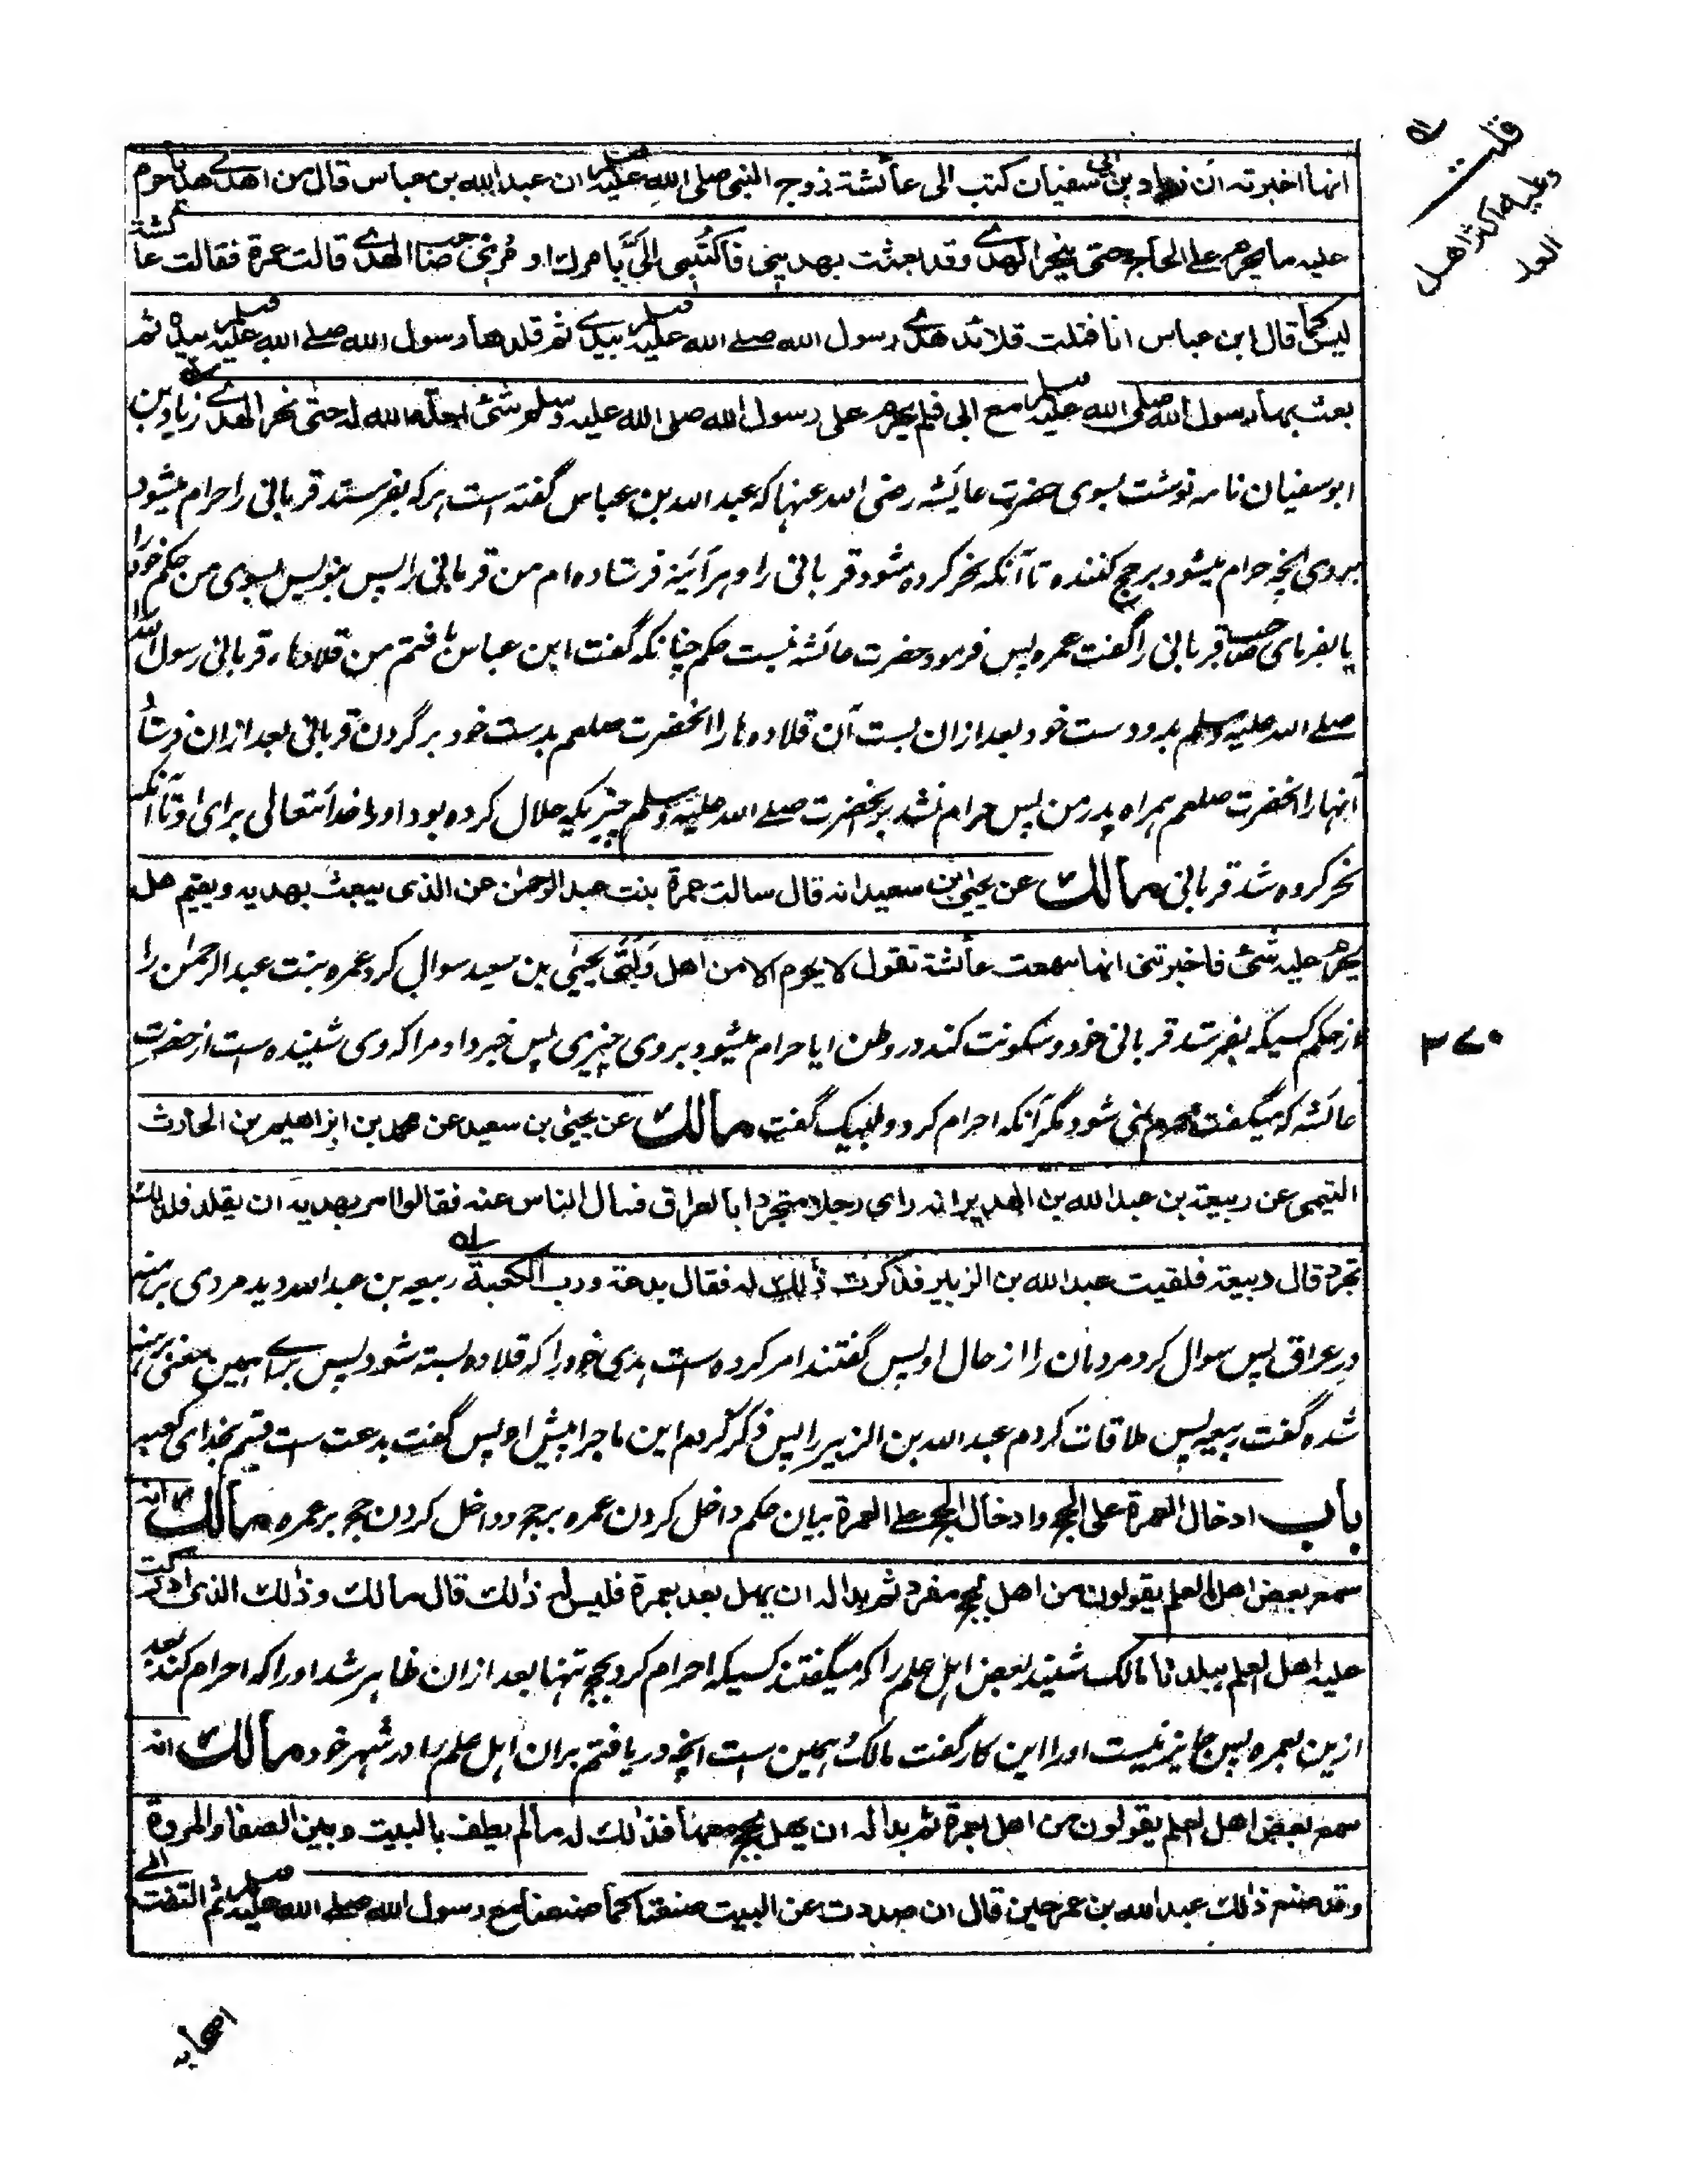 انها اخبرته ان زياد بن ابى سفيان كتب الى عائشة زوج النبى صلى الله عليه وسلم ان عبد الله بن عباس قال من اهدى هديا حرم
عليه ما يحرم على الحاج حتى ينحر الهدى وقد بعثت بهدیی فاكتبى الىّ بامرك او مُرى صاحب الهدى قالت عمرة فقالت عائشة
ليس كما قال ابن عباس انا فتلت قلائد هدى رسول الله صلى الله عليه وسلم بيدى ثم قلدها رسول الله صلے الله عليه وسلم بيده ثم
بعث بها رسول الله صلى الله عليه وسلم مع ابى فلم يحرم على رسول الله صلى الله عليه وسلم شئ احله الله له حتى نحر الهدى زیاد بن
ابو سفیان نامه نوشت بسوی حضرت عایشه رضی الله عنها که عبد الله بن عباس گفته است هر که بفرستد قربانی را حرام میشود
بر وی آنچه حرام میشود بر حج کننده تا آنکه نحر کرده شود قربانی را و هر آئینه فرستاده ام من قربانی را پس بنویس بسوی من حکم خود را
یا بفرمای صاحب قربانی را گفت عمره پس فرمود حضرت عائشه نیست حکم چنانکه گفت ابن عباس تافتم من قلادهاء قربانی رسول الله
صلے الله علیه وسلم بدو دست خود بعد ازان بست آن قلاده ها را آنحضرت صلعم بدست خود بر گردن قربانی بعد ازان فرستاد
آنها را آنحضرت صلعم همراه پدر من پس حرام نشد بر آنحضرت صلے الله علیه وسلم چیزیکه حلال کرده بود او را خدا تعالی برای او تا آنکه
نحر کرده شد قربانی مالك عن يحيى بن سعيد انه قال سالت عمرة بنت عبد الرحمٰن عن الذى يبعث بهديه ويقيم هل
يحرم عليه شئ فاخبرتنى انها سمعت عائشة تقول لا يحرم الا من اهل ولبّى یحیی بن سعید سوال کرد عمره بنت عبد الرحمٰن را
از حکم کسیکه بفرستد قربانی خود و سکونت کند در وطن ایا حرام میشود بر وی چیزی پس خبر داد مرا که وی شنیده است از حضرت
عائشه که میگفت محرم نمی شود مگر آنکه احرام کرد و لبیک گفت مالك عن يحيى بن سعيد عن محمد بن ابراهيم بن الحارث
التيمى عن ربيعة بن عبد الله بن الهدير انه راى رجلا متجردا بالعراق فسال الناس عنه فقالوا امر بهديه ان يقلد فلذلك
تجرد قال ربيعة فلقيت عبد الله بن الزبير فذكرت ذلك له فقال بدعة ورب الكعبة ربیعه بن عبد الله دید مردی برهنه
در عراق پس سوال کرد مردمان را از حال او پس گفتند امر کرده است هدی خود را که قلاده بسته شود پس برای همین معنی برهنه
شده گفت ربیعه پس ملاقات کردم عبد الله بن الزبیر را پس ذکر کردم این ماجرا پیش او پس گفت بدعت است قسم بخدای کعبه
باب ادخال العمرة على الحج وادخال الحج على العمرة بیان حکم داخل کردن عمره بر حج و داخل کردن حج بر عمره مالك انه
سمع بعض اهل العلم يقولون من اهل بحج مفرد ثم بدا له ان يهل بعد بعمرة فليس له ذلك قال مالك وذلك الذى ادركت
عليه اهل العلم ببلدنا مالک شنید بعض اهل علم را که میگفتند کسیکه احرام کرد بحج تنها بعد ازان ظاهر شد او را که احرام کند بعد
ازین بعمره پس جایز نیست او را این کار گفت مالک همین است آنچه دریافتم بران اهل علم را در شهر خود مالك انه
سمع بعض اهل العلم يقولون من اهل بعمرة ثم بدا له ان يهل بحج معها فذلك له ما لم يطف بالبيت وبين الصفا والمروة
وقد صنع ذلك عبد الله بن عمر حين قال ان صددت عن البيت صنعنا كما صنعنا مع رسول الله صلے الله عليه وسلم ثم التفت الى
قلت
وعليه اكثر اهل
العلم
۳۷۰
اصحابه